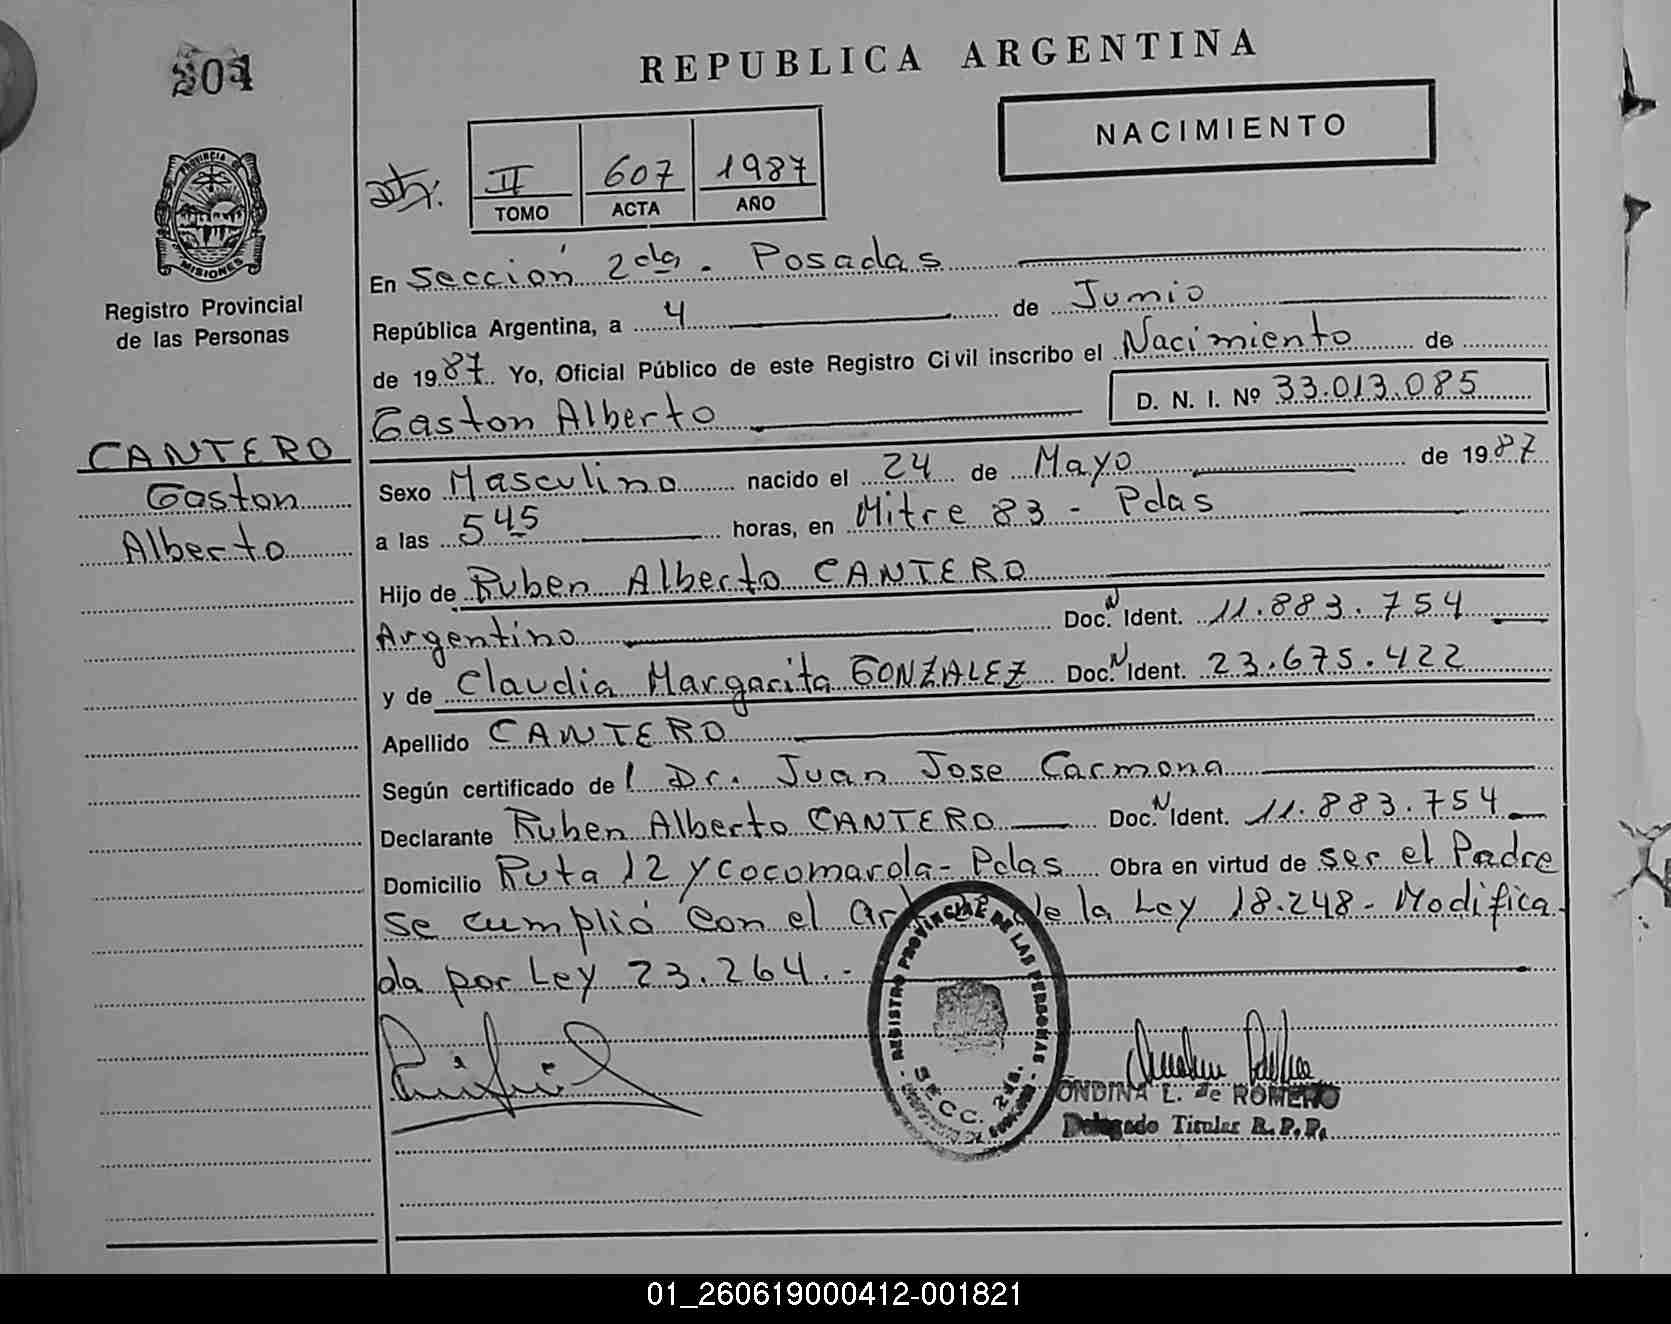 204
REPUBLICA ARGENTINA
NACIMIENTO
II 607 1987
TOMO ACTA AÑO
PROVINCIA DE
MISIONES
Registro Provincial
de las Personas
CANTERO
Gaston
Alberto
En Sección 2da. Posadas
República Argentina, a 4 de Junio
de 1987. Yo, Oficial Público de este Registro Civil inscribo el Nacimiento de
Gaston Alberto D. N. I. Nº 33.013.085
Sexo Masculino nacido el 24 de Mayo de 1987
a las 5 45 horas, en Mitre 83 - Pdas
Hijo de Ruben Alberto CANTERO
Argentino Doc. N Ident. 11.883.754
y de Claudia Margarita GONZALEZ Doc. N Ident. 23.675.422
Apellido CANTERO
Según certificado de l Dr. Juan Jose Carmona
Declarante Ruben Alberto CANTERO Doc. N Ident. 11.883.754
Domicilio Ruta 12 y Cocomarola - Pdas Obra en virtud de ser el Padre
Se cumplió con el de la Ley 18.248 - Modifica
da por Ley 23.264.-
REGISTRO PROVINCIAL DE LAS PERSONAS
SECC. 2da.
ONDINA L. de ROMERO
Delegado Titular R.P.P.
01_260619000412-001821